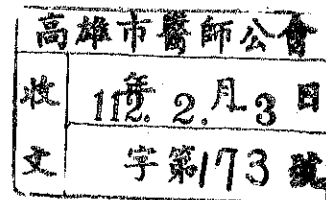 高雄市醫師公會
收文
112年2月3日
字第173號